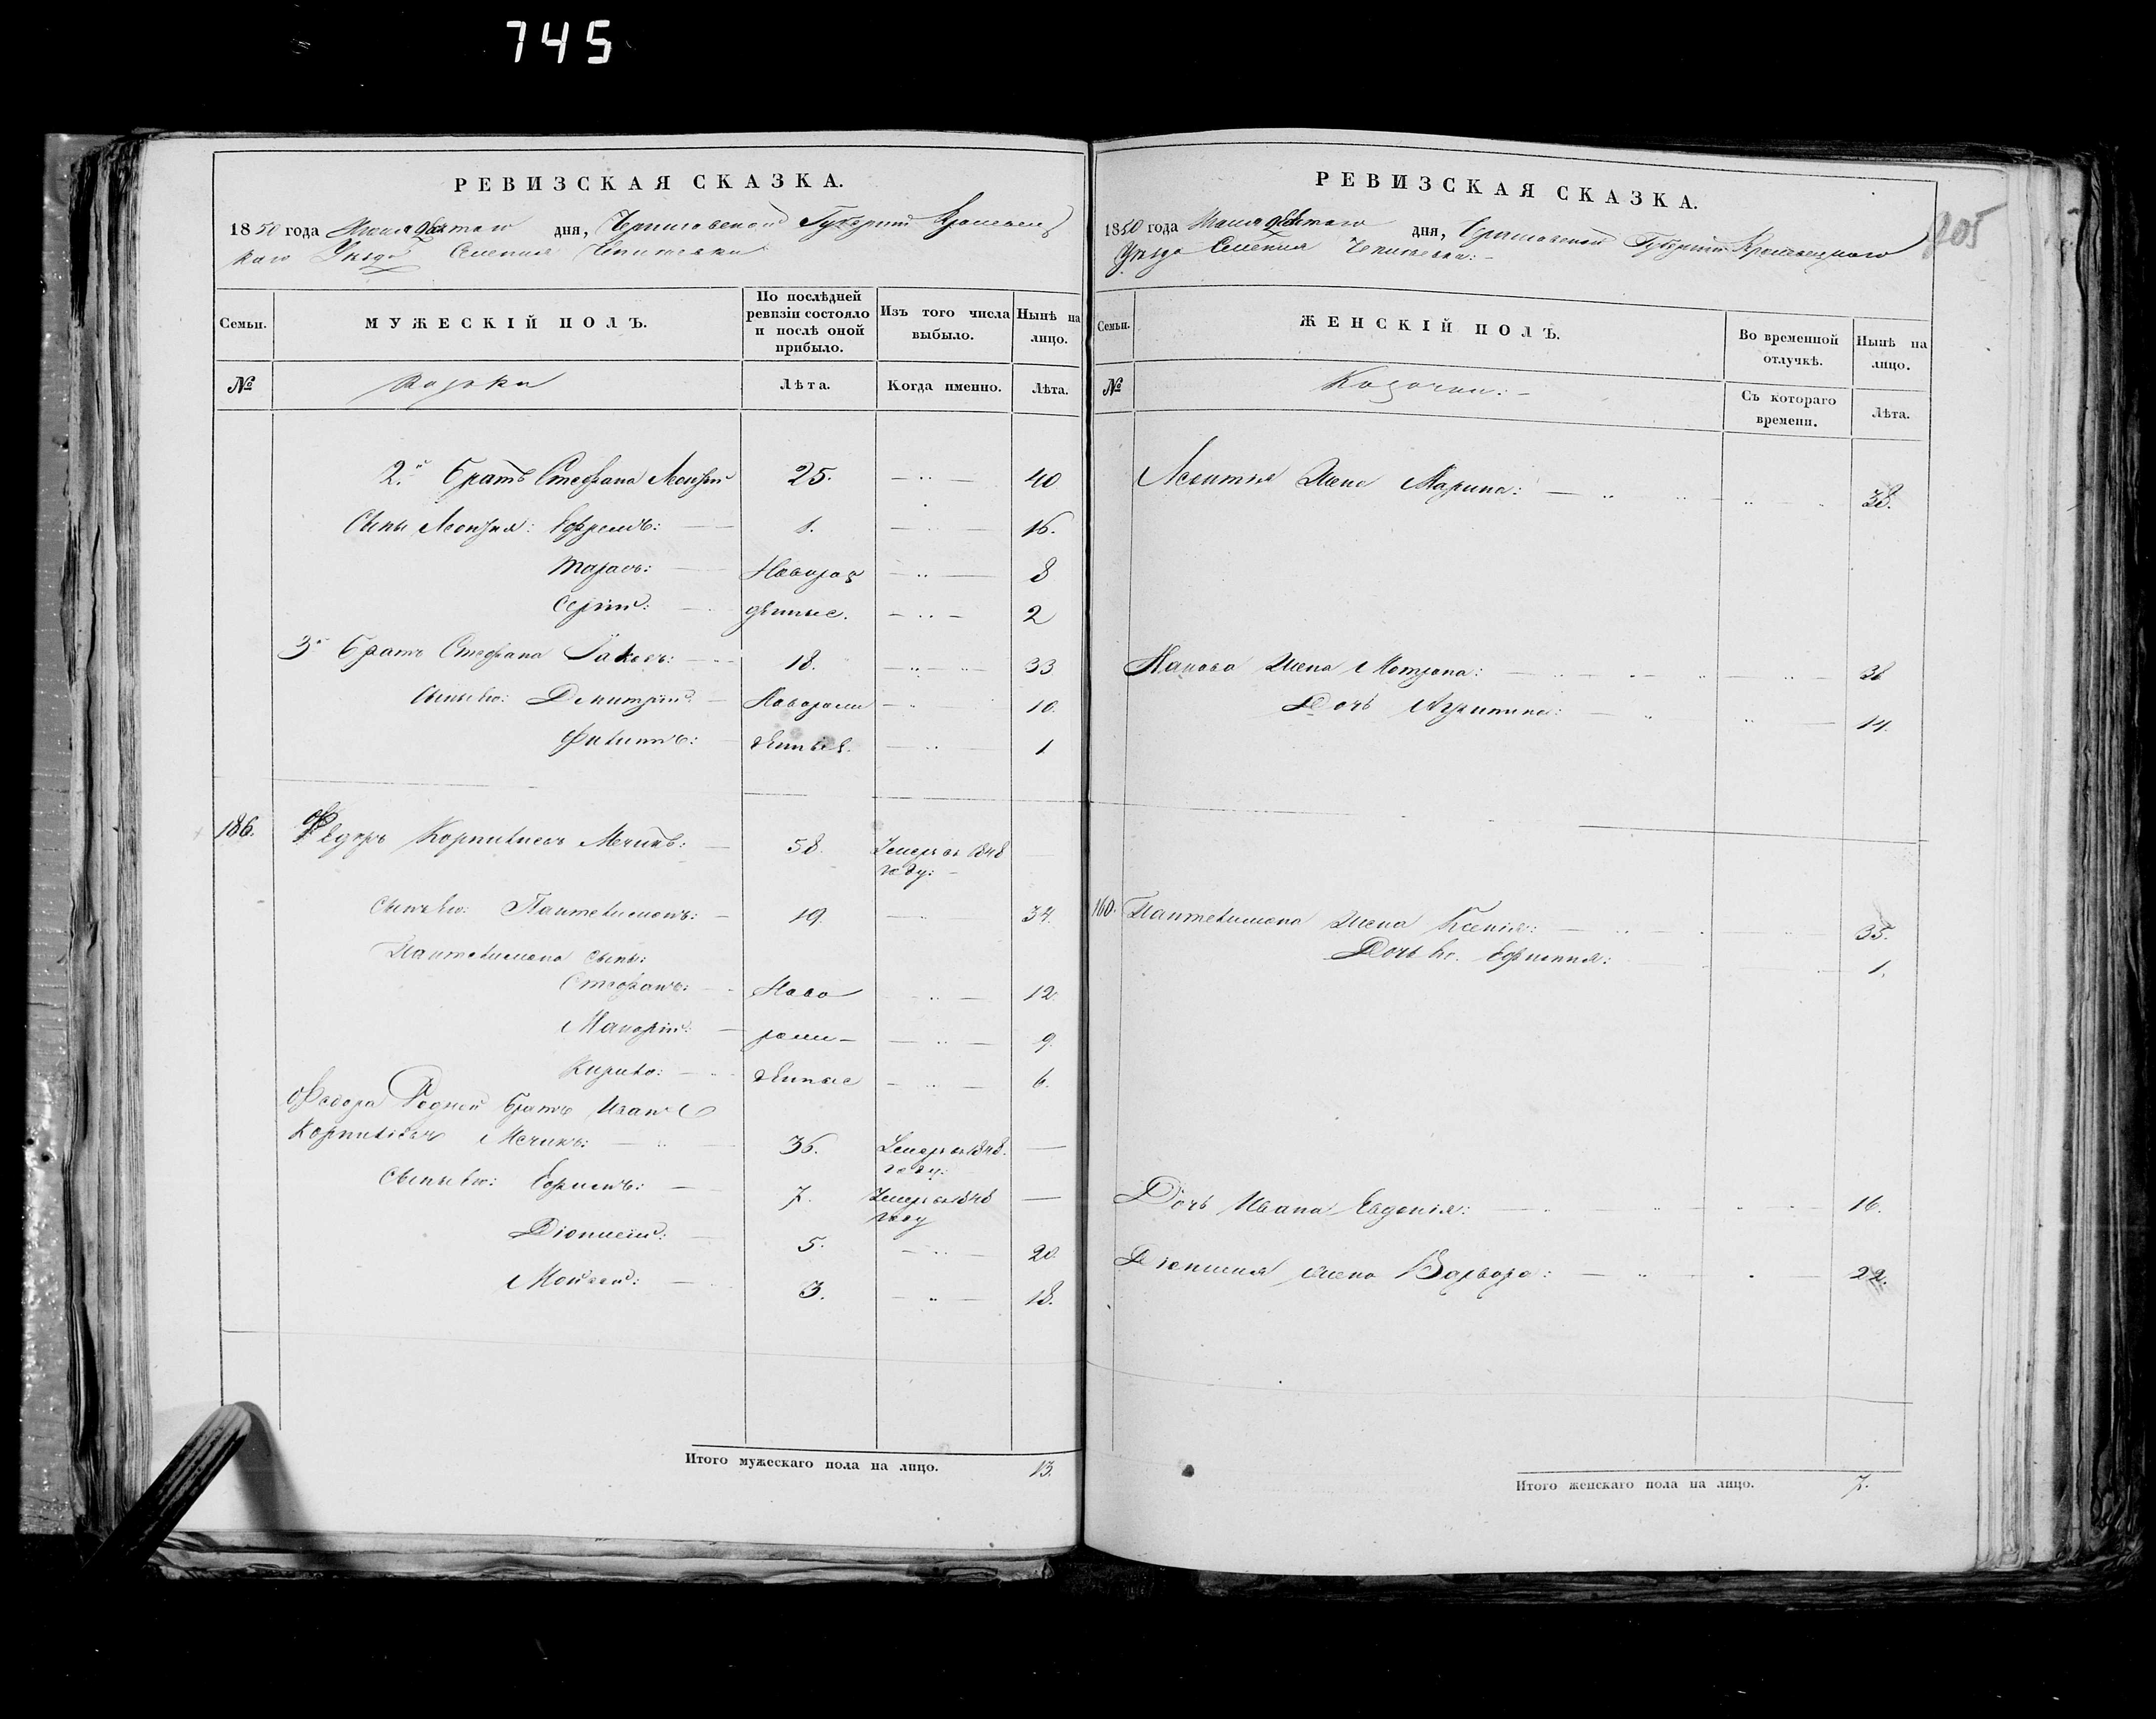 745
РЕВИЗСКАЯ СКАЗКА.
1850 года дня, Черниговской Губерніи Кролевец
каго Уезда Селенія
Семьи.
МУЖЕСКІЙ ПОЛЪ.
По послѣдней ревизіи состояло и послѣ оной прибыло.
Изъ того числа выбыло.
Нынѣ на лицо.
№
Лѣта.
Когда именно.
Лѣта.
2й братъ Стефана Леонтій 25. 40
Сыны Леонтія: Ефремъ: 1. 16.
Тарасъ: Новорож 8
Сергій: денные. 2
3й братъ Стефана Іаковъ: 18. 33
Сыны его: Дмитрій: Наворож 10.
Филипъ: денные. 1
186. Федоръ Корнилиевъ Мечикъ: 58. Умеръ въ 1848
году:
Сынъ его: Пантелимонъ: 19. 34.
Пантелимона сыны:
Стефанъ: Ново 12
рож- 9.
Кирило: денные 6.
Федора Родной братъ Иванъ
Мечикъ: 36. Умеръ въ 1848.
году:
Сыны его: 7. Умеръ въ 1848
году
Діонисій: 5. 20.
Мойсей: 3. 18.
Итого мужескаго пола на лицо. 13.
РЕВИЗСКАЯ СКАЗКА.
905
1850 года дня, Черниговской Губерніи Кролевецкаго
Уезда Селенія
Семьи.
ЖЕНСКІЙ ПОЛЪ.
Во временной отлучкѣ.
Нынѣ на лицо.
№
Козачки:
Съ котораго времени.
Лѣта.
Леонтія Жена Марина: 38.
Якова Жена Мотрона:
Дочь Агрипина: 14.
Пантелимона Жена Ксенія: 35.
Дочь его. Ефимия: 1.
Дочь Ивана Евдокія: 16.
Діонисія жена Варвара: 22.
Итого женскаго пола на лицо. 7.